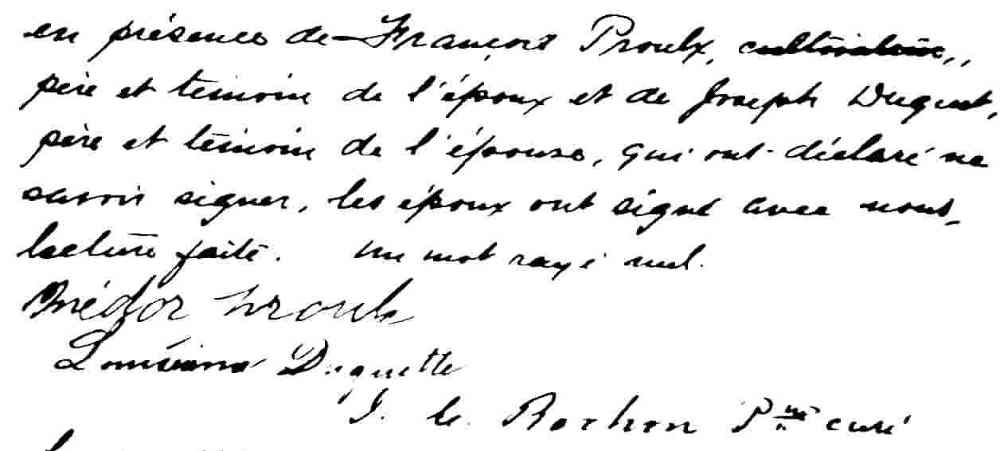 en présence de François Proulx, cultivateur,,
père et témoin de l'époux et de Joseph Duquet,
père et témoin de l'épouse, qui ont déclaré ne
savoir signer, les époux ont signé avec nous,
lecture faite. Un mot rayé nul.
Médor Proulx
Louisiana Duquette
J. C. Rochon Ptre curé